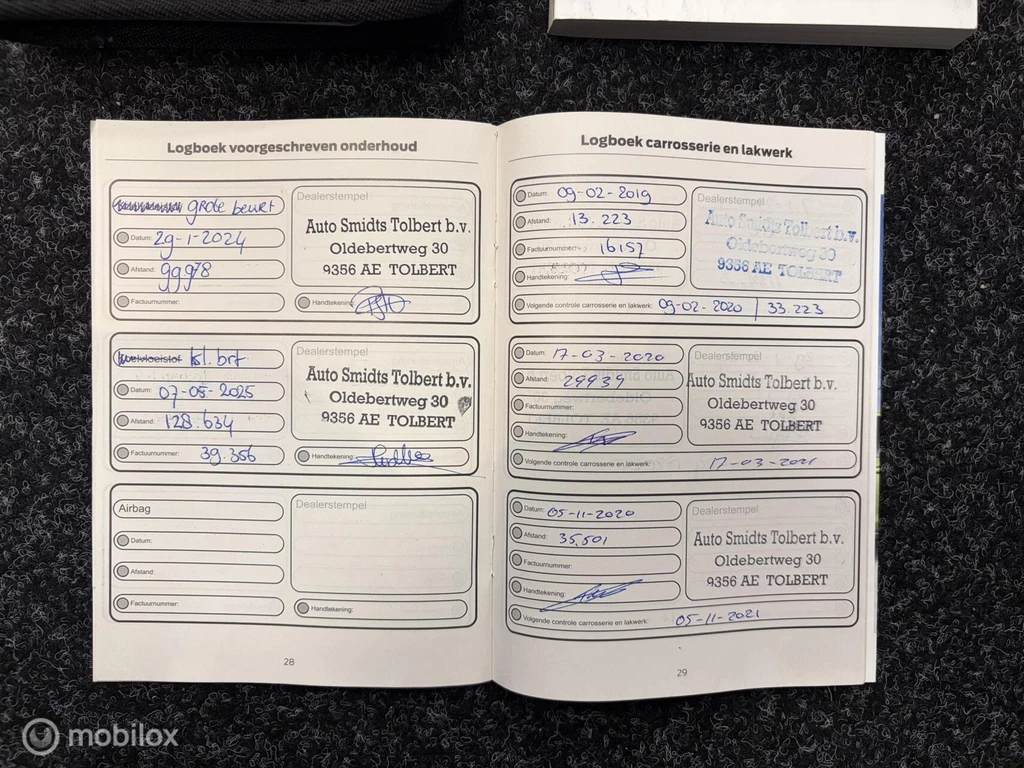 Logboek voorgeschreven onderhoud
grote beurt
Datum: 29-1-2024
Afstand: 99978
Factuurnummer:
Dealerstempel
Auto Smidts Tolbert b.v.
Oldebertweg 30
9356 AE TOLBERT
Handtekening:
Koelvloeistof kl. brt
Datum: 07-05-2025
Afstand: 128.634
Factuurnummer: 39.356
Dealerstempel
Auto Smidts Tolbert b.v.
Oldebertweg 30
9356 AE TOLBERT
Handtekening:
Airbag
Datum:
Afstand:
Factuurnummer:
Dealerstempel
Handtekening:
28
Logboek carrosserie en lakwerk
Datum: 09-02-2019
Afstand: 13.223
Factuurnummer: 16157
Handtekening:
Dealerstempel
Auto Smidts Tolbert b.v.
Oldebertweg 30
9356 AE TOLBERT
Volgende controle carrosserie en lakwerk: 09-02-2020 | 33.223
Datum: 17-03-2020
Afstand: 29939
Factuurnummer:
Handtekening:
Dealerstempel
Auto Smidts Tolbert b.v.
Oldebertweg 30
9356 AE TOLBERT
Volgende controle carrosserie en lakwerk: 17-03-2021
Datum: 05-11-2020
Afstand: 35.501
Factuurnummer:
Handtekening:
Dealerstempel
Auto Smidts Tolbert b.v.
Oldebertweg 30
9356 AE TOLBERT
Volgende controle carrosserie en lakwerk: 05-11-2021
29
mobilox